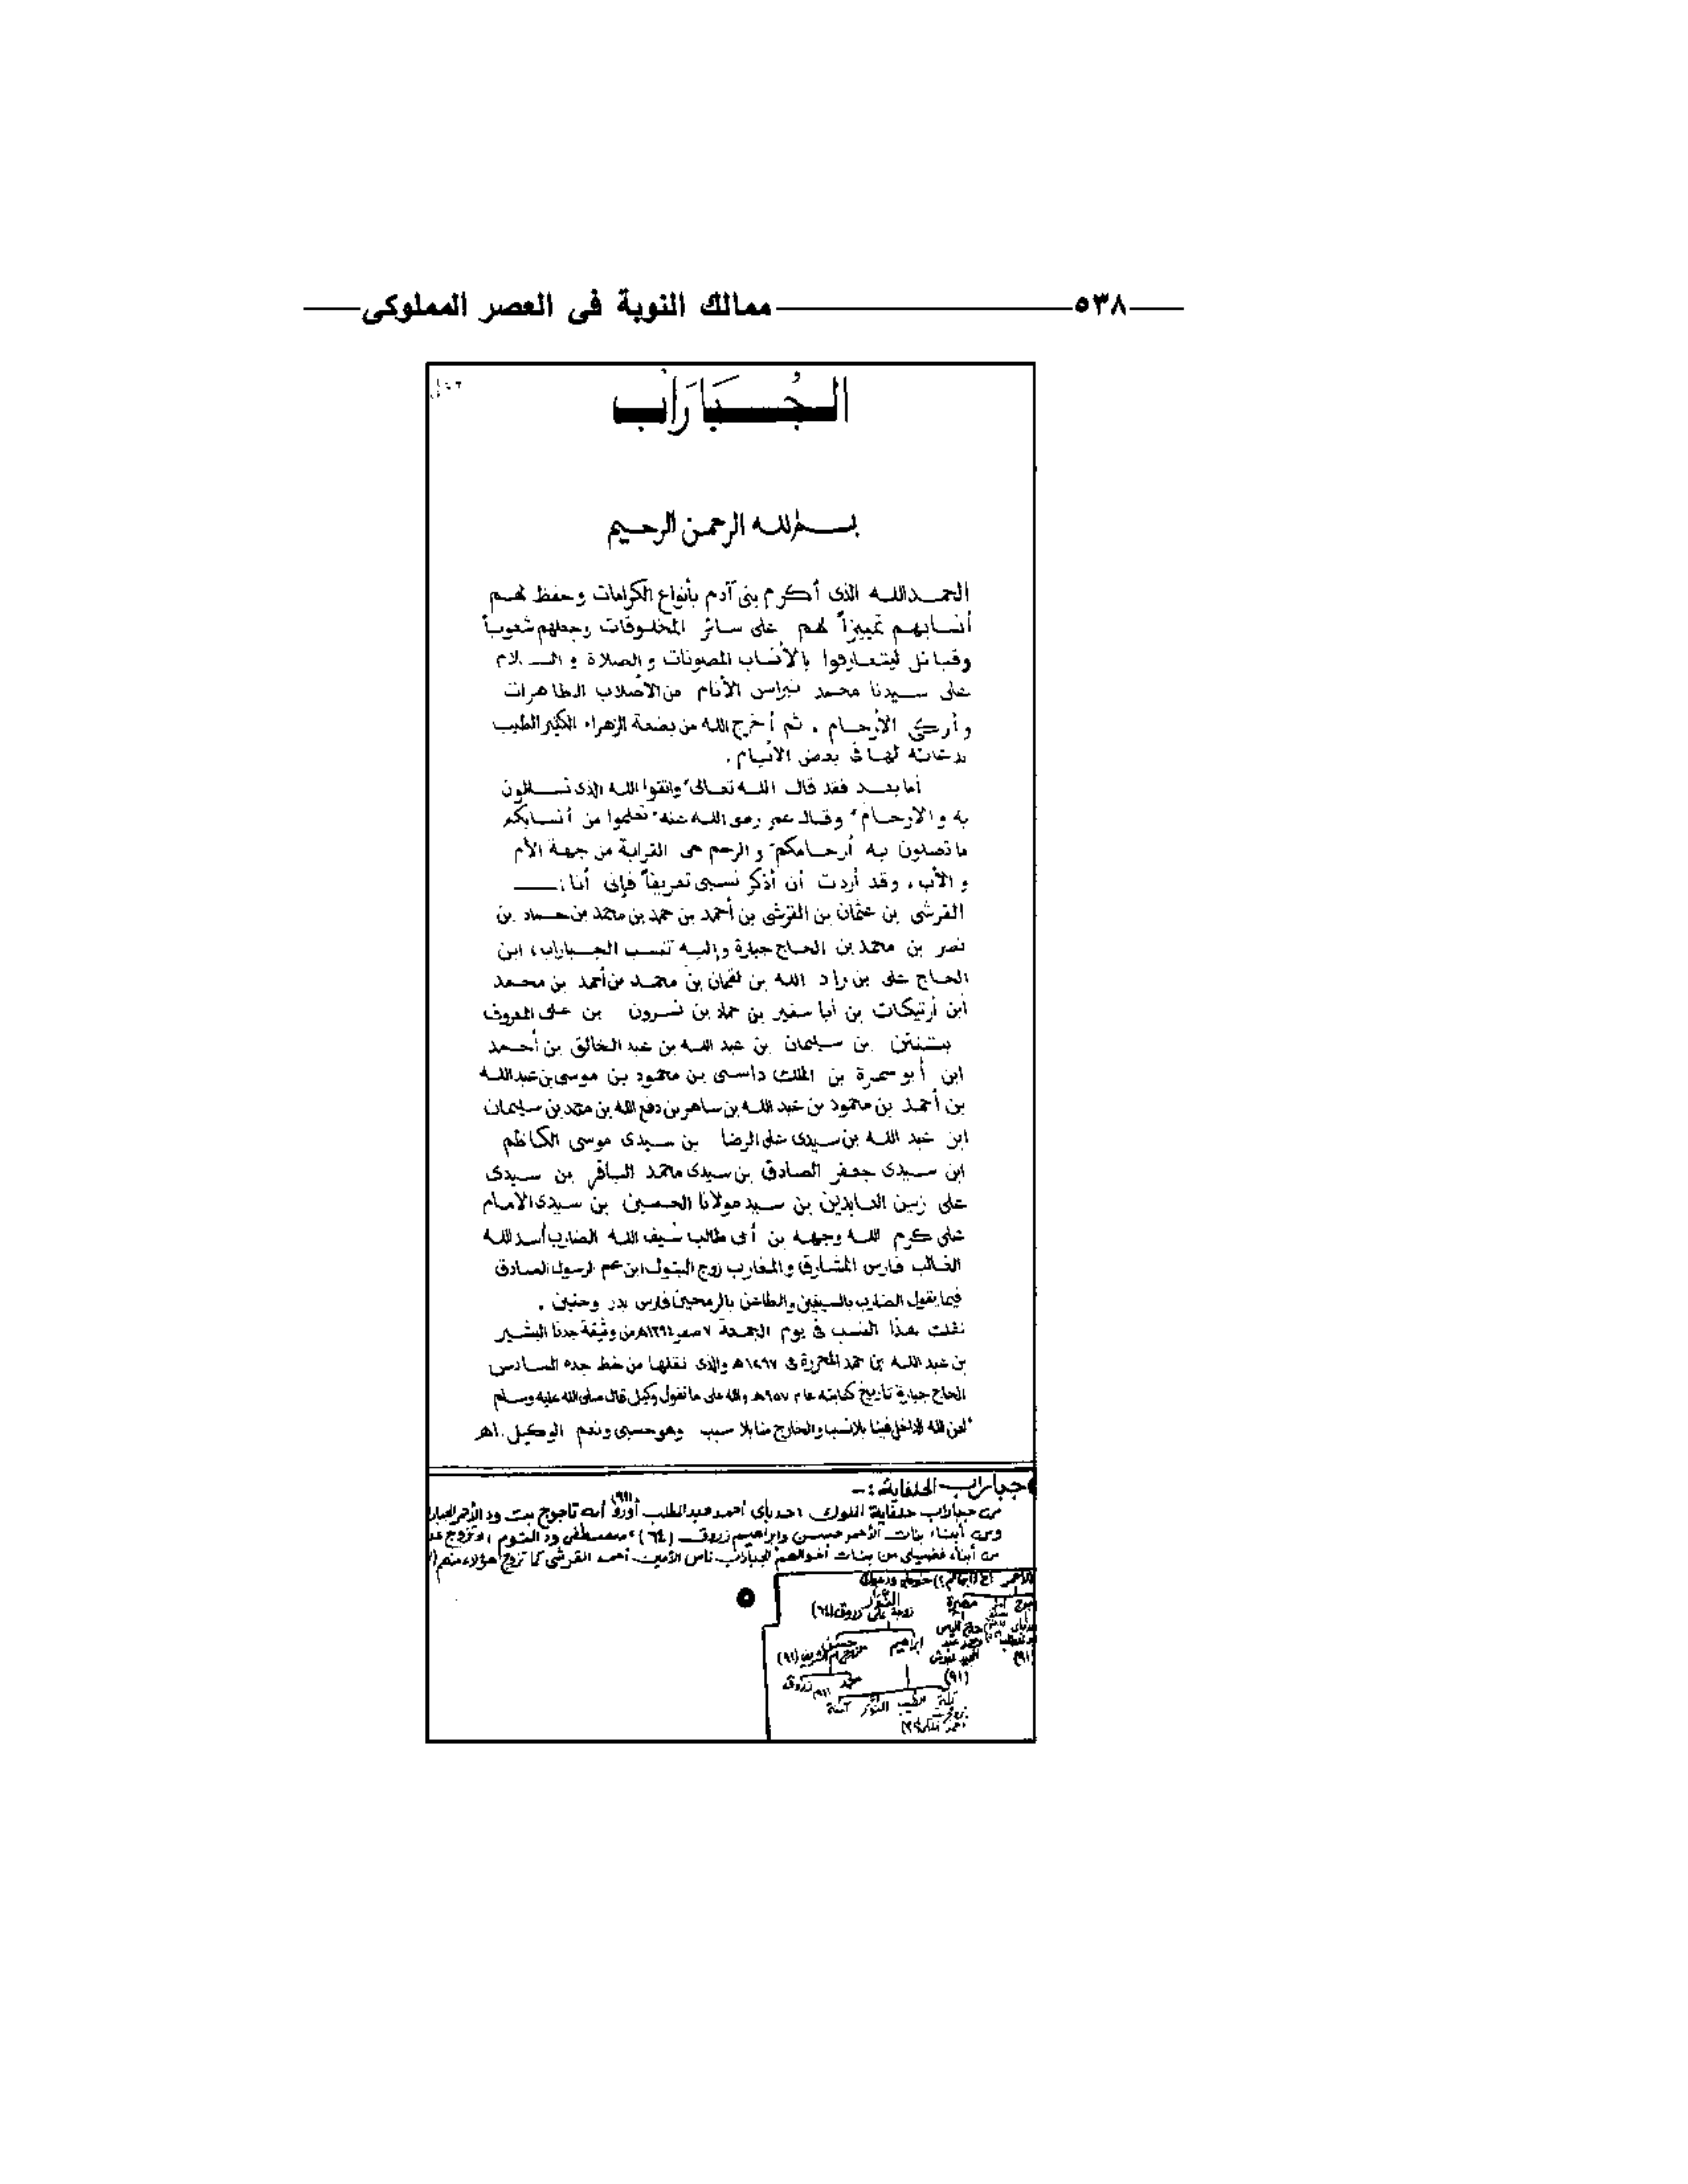 ٥٣٨ ممالك النوبة فى العصر المملوكى
الجُبَارَاب
بسم الله الرحمن الرحيم
الحمد لله الذى أكرم بنى آدم بأنواع الكرامات وحفظ لهم
أنسابهم تمييزاً لهم على سائر المخلوقات وجعلهم شعوباً
وقبائل ليتعارفوا بالأنساب المصونات والصلاة والسلام
على سيدنا محمد نبراس الأنام من الأصلاب الطاهرات
وأزكى الأرحام . ثم أخرج الله من بضعة الزهراء الكثير الطيب
لها فى بعض الأيام .
أما بعد فقد قال الله تعالى "واتقوا الله الذى تساءلون
به والارحام" وقال عمر رضى الله عنه "تعلموا من أنسابكم
ما تصلون به أرحامكم" والرحم هى القرابة من جهة الأم
والأب ، وقد أردت أن أذكر نسبى تعريفاً فإنى أنا :ـــ
القرشى بن عثمان بن القرشى بن أحمد بن حمد بن محمد بن حماد بن
نصر بن محمد بن الحاج جبارة وإليه تنسب الجباراب ، ابن
الحاج على بن راد الله بن لقمان بن محمد بن أحمد بن محمد
ابن أرتيكات بن أبا سفير بن حماد بن نسرون بن على المعروف
بن سليمان بن عبد الله بن عبد الخالق بن أحمد
ابن أبو سمرة بن الملك داسى بن محمود بن موسى بن عبد الله
بن أحمد بن محمود بن عبد الله بن ساهر بن دفع الله بن محمد بن سليمان
ابن عبد الله بن سيدى على الرضا بن سيدى موسى الكاظم
ابن سيدى جعفر الصادق بن سيدى محمد الباقر بن سيدى
على زين العابدين بن سيد مولانا الحسين بن سيدى الامام
على كرم الله وجهه بن أبى طالب سيف الله الضارب أسد الله
الغالب فارس المشارق والمغارب زوج البتول ابن عم الرسول الصادق
فيما يقول الضارب بالسيفين والطاعن بالرمحين فارس بدر وحنين .
نقلت هذا النسب فى يوم الجمعة ٧ صفر ١٣٩٤هـ من وثيقة جدنا البشير
بن عبد الله بن حمد المحررة فى ١٢٩٧هـ والذى نقلها من خط جده السادس
الحاج جبارة تاريخ كتابته عام ٩٥٧هـ والله على ما نقول وكيل قال صلى الله عليه وسلم
"لعن الله الداخل فينا بلا نسب والخارج منا بلا سبب وهو حسبى ونعم الوكيل . اهـ
جباراب الحلفاية :ـ
من جباراب حلفاية الملوك أحمد عبد المطلب أمه تاجوج بنت ود الأحمر
ومن أبناء بنات الأحمر حسن وابراهيم زروق (٦٤) مصطفى ود التوم
من أبناء فضيلى من بنات أخوالهم الجباراب ناس الأمين أحمد القرشى كما تزوج هؤلاء منهم
الأحمر
زوجة على زروق (٦٤)
حسن ابراهيم
محمد زروق
(٩١)
الطيب آمنة